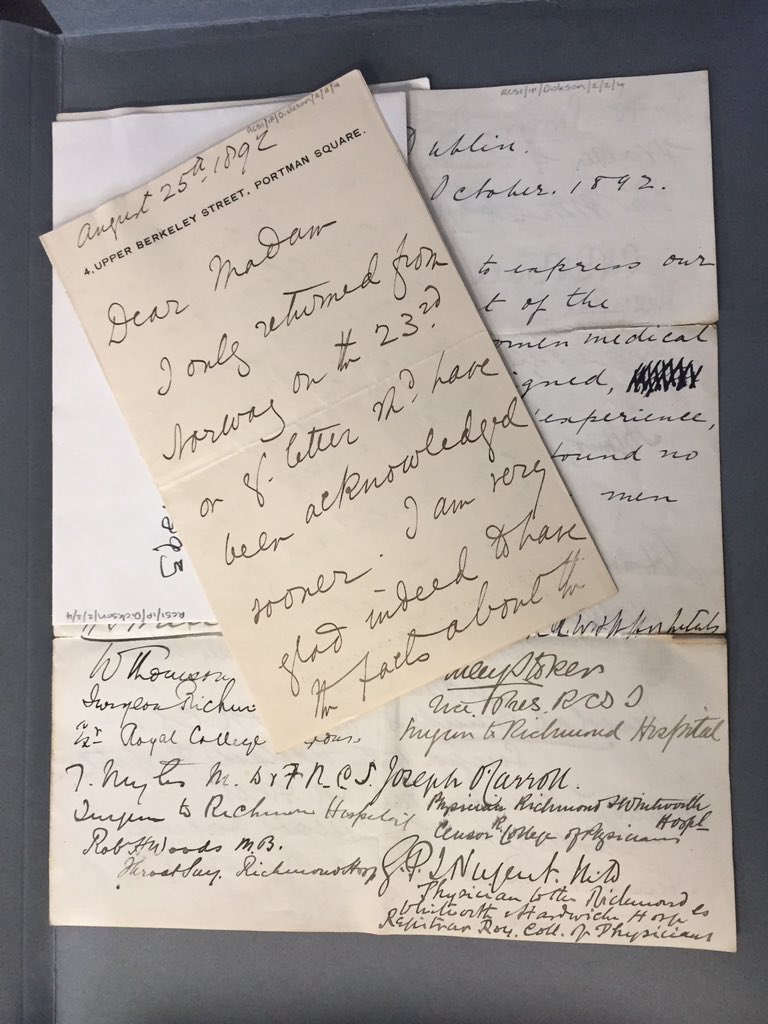 RCSI/IP/Dickson/2/2/4
August 25th. 1892
4, UPPER BERKELEY STREET, PORTMAN SQUARE.
Dear Madam
I only returned from
Norway on th 23rd
or yr. letter shd. have
been acknowledged
sooner. I am very
glad indeed to have
th facts about th
RCSI/IP/Dickson/2/2/4
ublin.
October. 1892.
to express our
t of the
omen medical
igned,
experience,
ound no
men
Hospitals
RCSI/IP/Dickson/2/2/4
W Thomson
Surgeon Richm
Royal College
T. Myles M.D & F.R.C.S.
Surgeon to Richmond Hospital
Robt H Woods M.B.
Throat Surg. Richmond Hosp
Stoker
Vice Pres. R C S I
Surgeon to Richmond Hospital
Joseph O'Carroll.
Physician Richmond & Whitworth
Hospl
Censor R College of Physicians
G. P. L Nugent. MD
Physician to the Richmond
Whitworth & Hardwicke Hospls
Registrar Roy. Coll. of Physicians